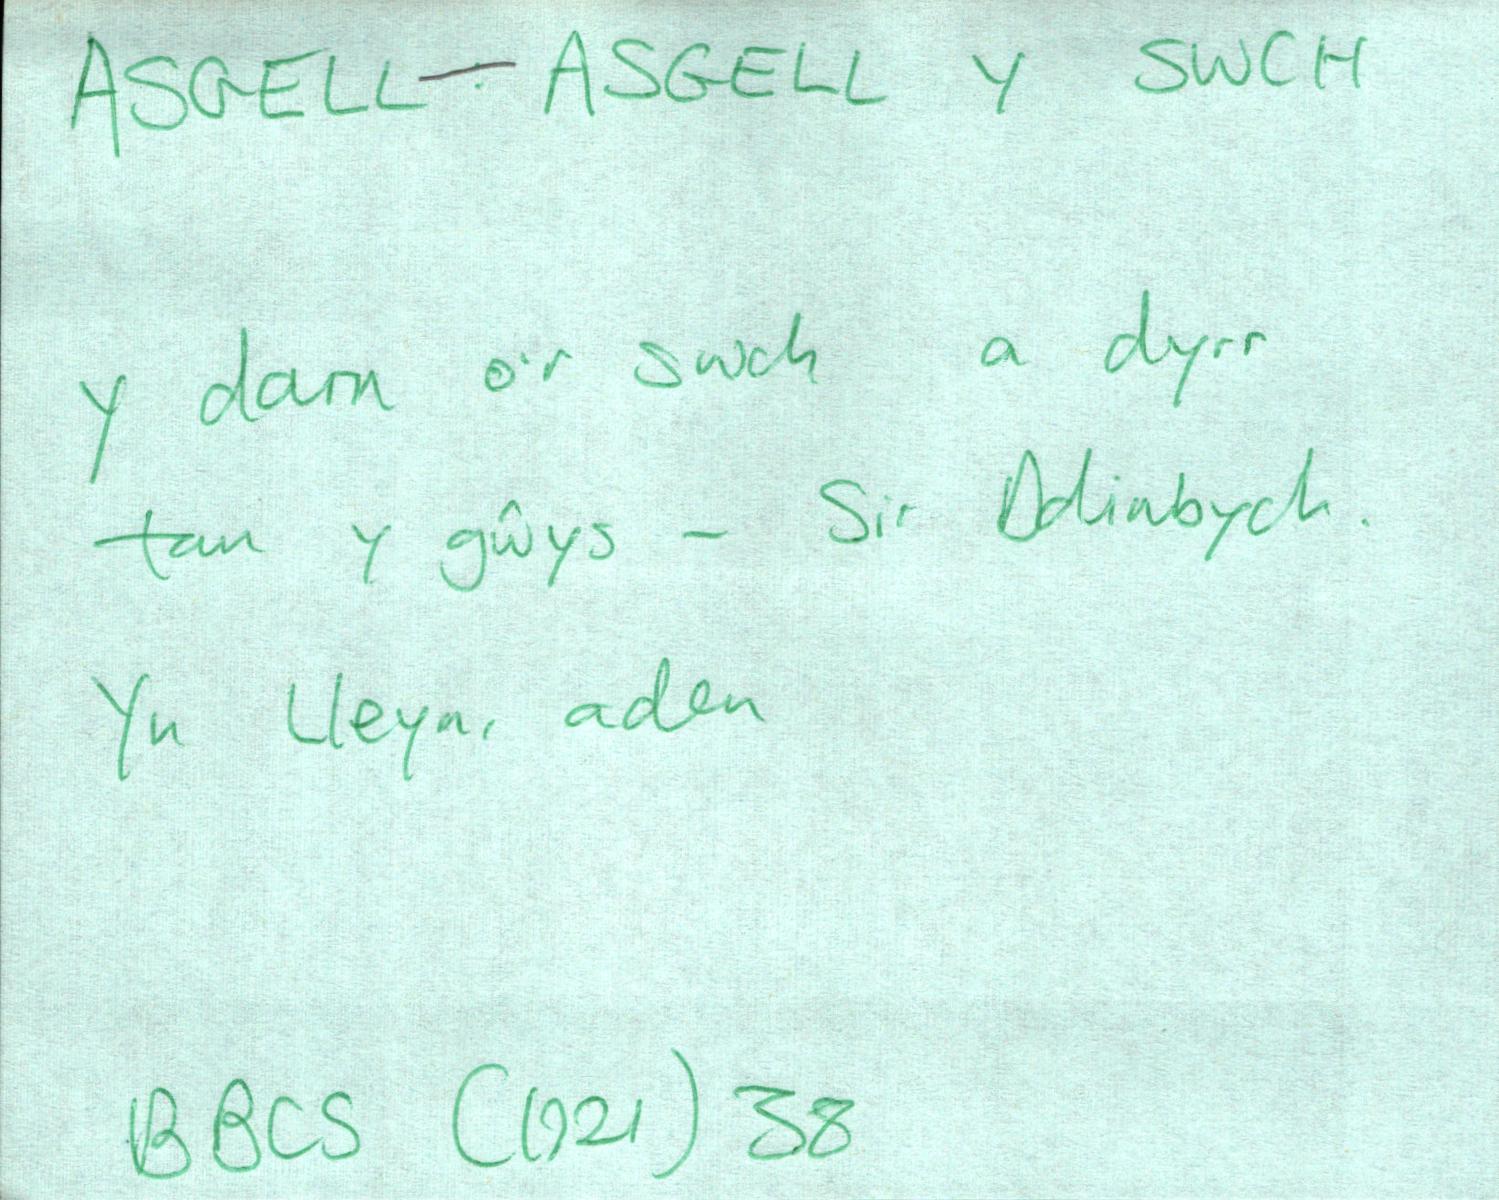 ASGELL — ASGELL Y SWCH
y darn o'r swch a dyrr
tan y gŵys – Sir Ddinbych.
Yn Lleyn, aden
BBCS (1921) 38